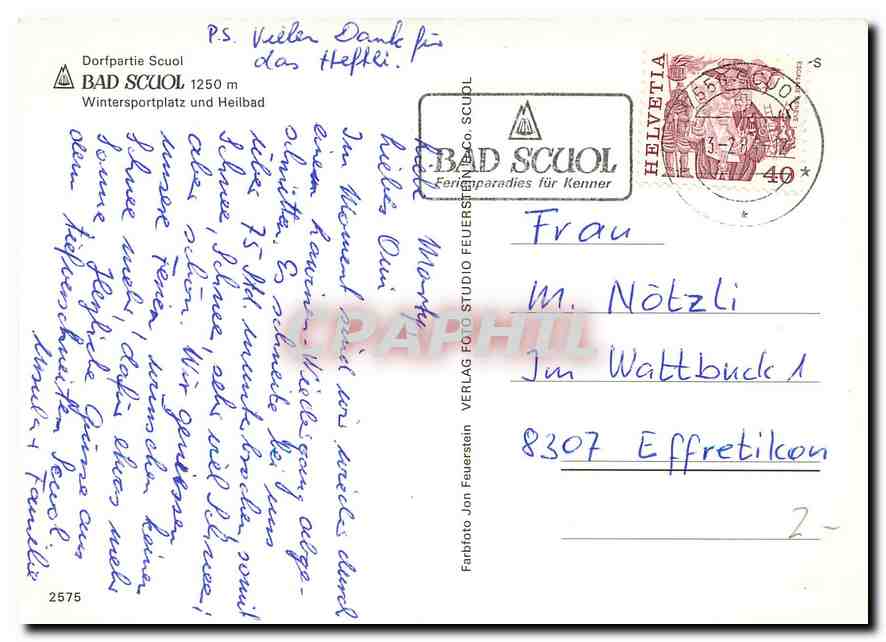 P.S. Vielen Dank für
das Heftli.
Dorfpartie Scuol
BAD SCUOL 1250 m
Wintersportplatz und Heilbad
Liebes Omi
Im Moment sind wir wieder durch
einen Lawinen-Niedergang abge-
schnitten. Es schneite bei uns
über 75 Std. ununterbrochen, somit
Schnee, Schnee, sehr viel Schnee,
aber schön. Wir geniessen
unsere Ferien, wünschen keinen
Schnee mehr, dafür etwas mehr
Sonne. Herzliche Grüsse aus
dem tiefverschneiten Scuol.
Ursula + Familie
2575
Farbfoto Jon Feuerstein VERLAG FOTO STUDIO FEUERSTEIN & Co. SCUOL
BAD SCUOL
Ferienparadies für Kenner
HELVETIA
40
SCUOL
Frau
M. Nötzli
Im Wattbuck 1
8307 Effretikon
2-
CPAPHIL